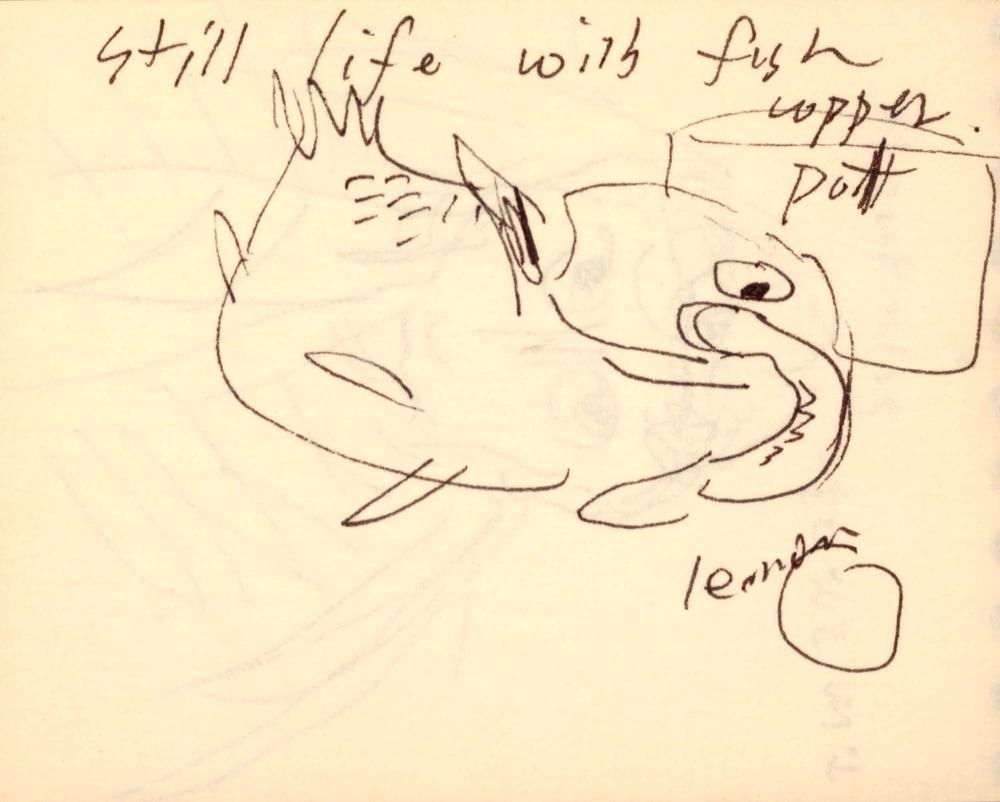 still life with fish
copper
pott
lemon